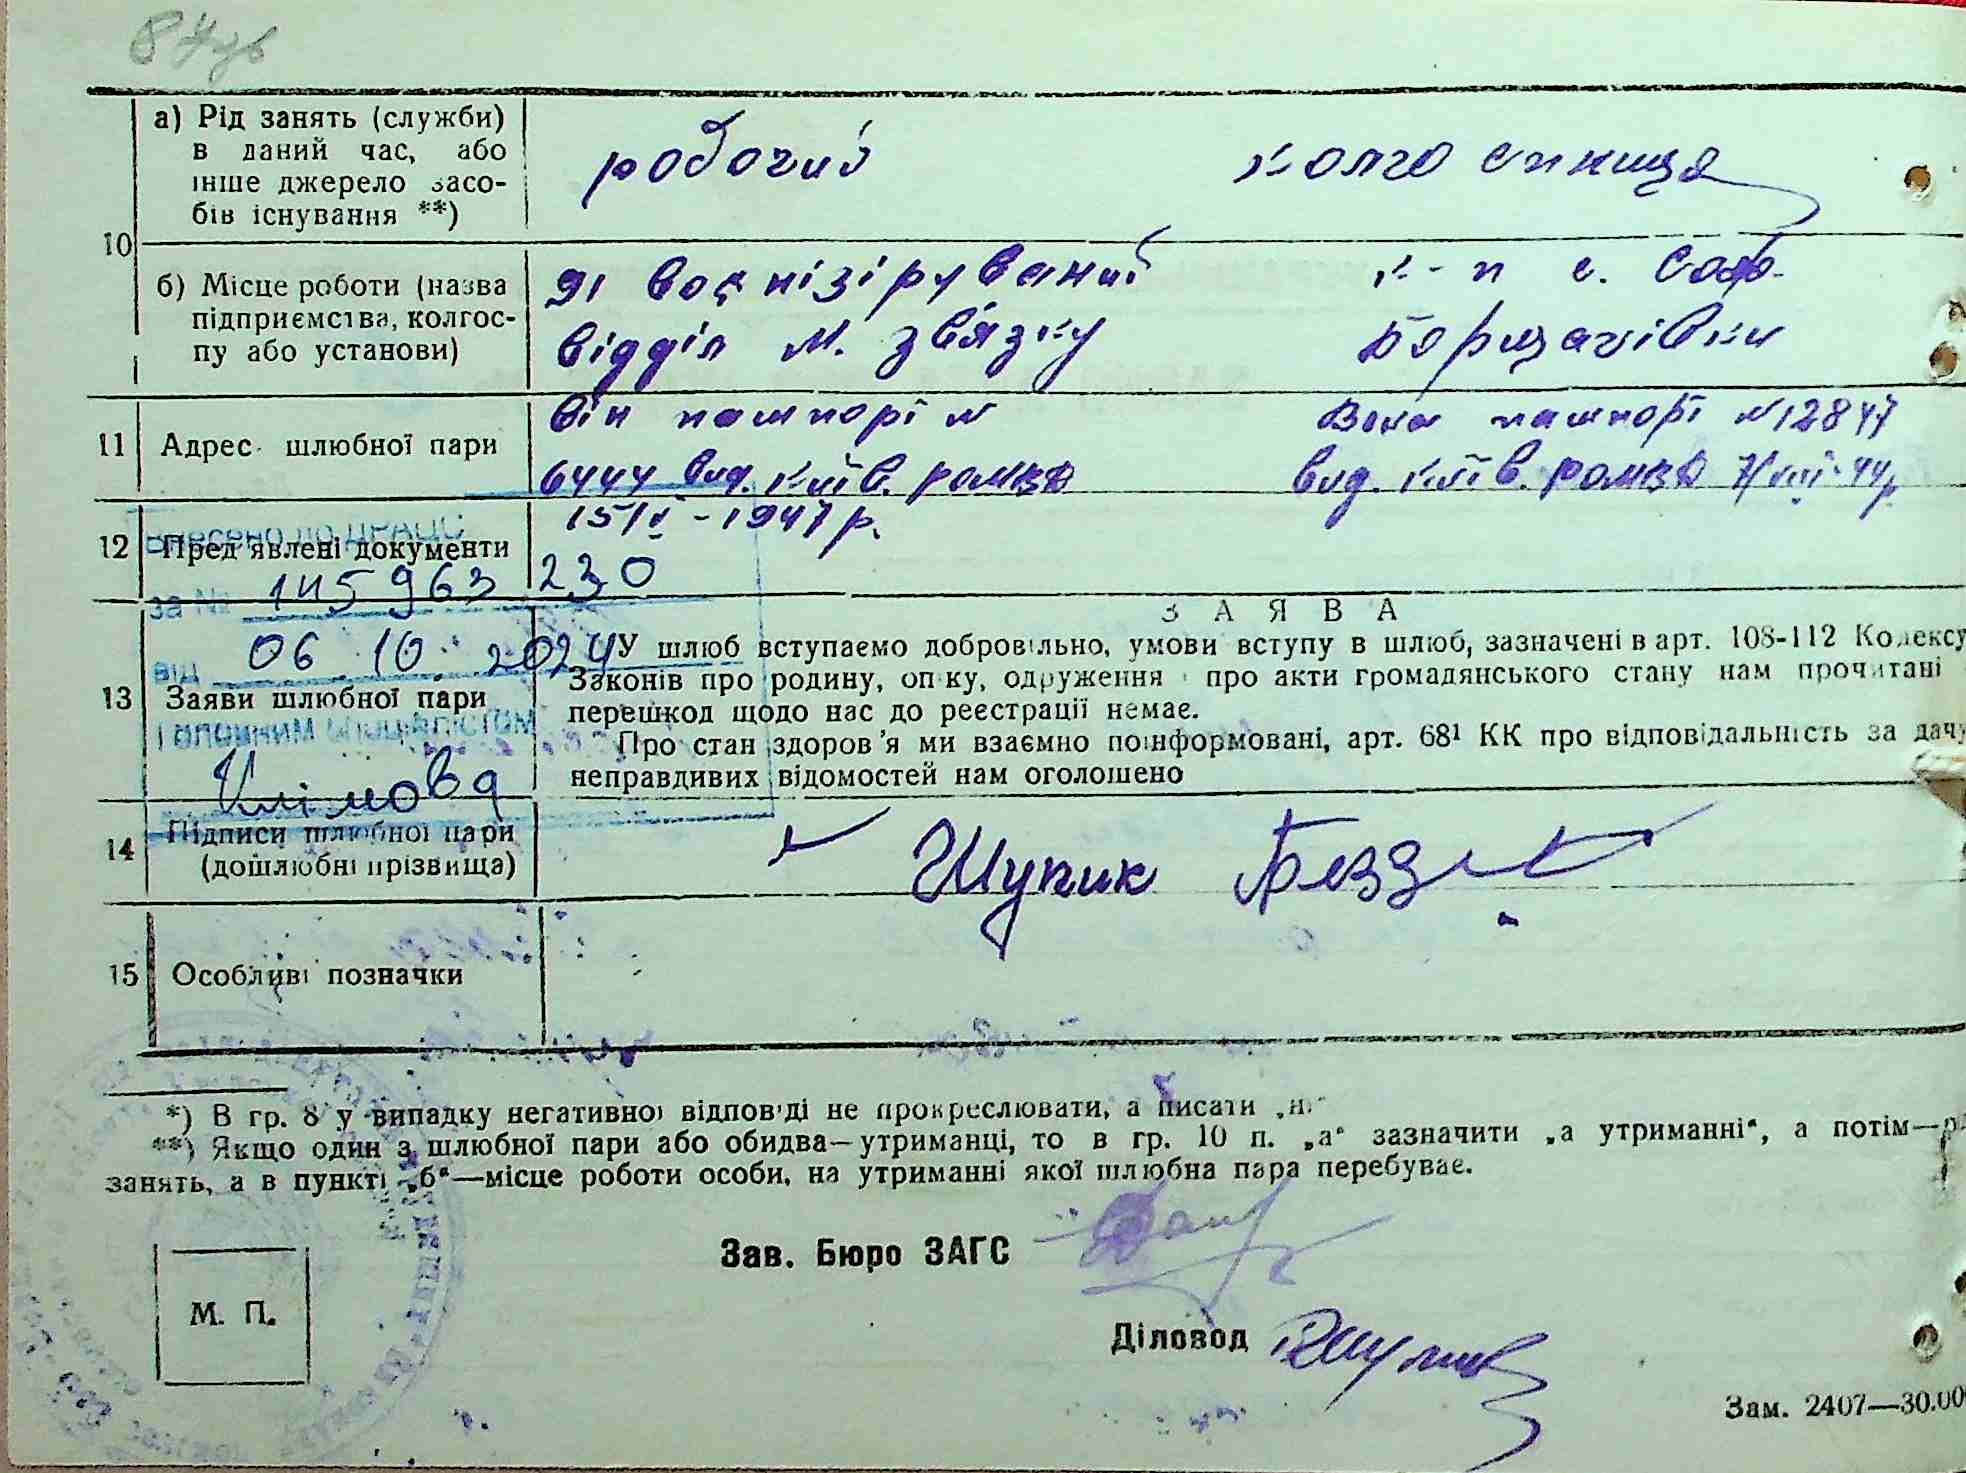 а) Рід занять (служби)
в даний час, або
інше джерело засо-
бів існування **)
робочий колгоспниця
10
б) Місце роботи (назва
підприємства, колгос-
пу або установи)
91 воєнізірований к-п с. Соф.
відділ М. зв'язку Борщагівки
11 Адрес шлюбної пари
він пашпорт № Вона пашпорт №12847
6444 вид. Київ. РОМВД вид. Київ. РОМВД 7/VIII-44р
15/V-1947 р.
12 Пред'явлені документи
Внесено до ДРАЦС
за № 145963 230
від 06.10.2024
ЗАЯВА
13 Заяви шлюбної пари
У шлюб вступаємо добровільно, умови вступу в шлюб, зазначені в арт. 108-112 Кодексу
Законів про родину, опіку, одруження і про акти громадянського стану нам прочитані
перешкод щодо нас до реєстрації немає.
Про стан здоров'я ми взаємно поінформовані, арт. 68¹ КК про відповідальність за дачу
неправдивих відомостей нам оголошено
Головним спеціалістом
Клімова
14 Підписи шлюбної пари
(дошлюбні прізвища)
Шупик
15 Особливі позначки
*) В гр. 8 у випадку негативної відповіді не прокреслювати, а писати „ні“
**) Якщо один з шлюбної пари або обидва—утриманці, то в гр. 10 п. „а“ зазначити „а утриманні“, а потім—
занять, а в пункті „б“—місце роботи особи, на утриманні якої шлюбна пара перебуває.
Зав. Бюро ЗАГС
М. П.
Діловод
Зам. 2407—30.00